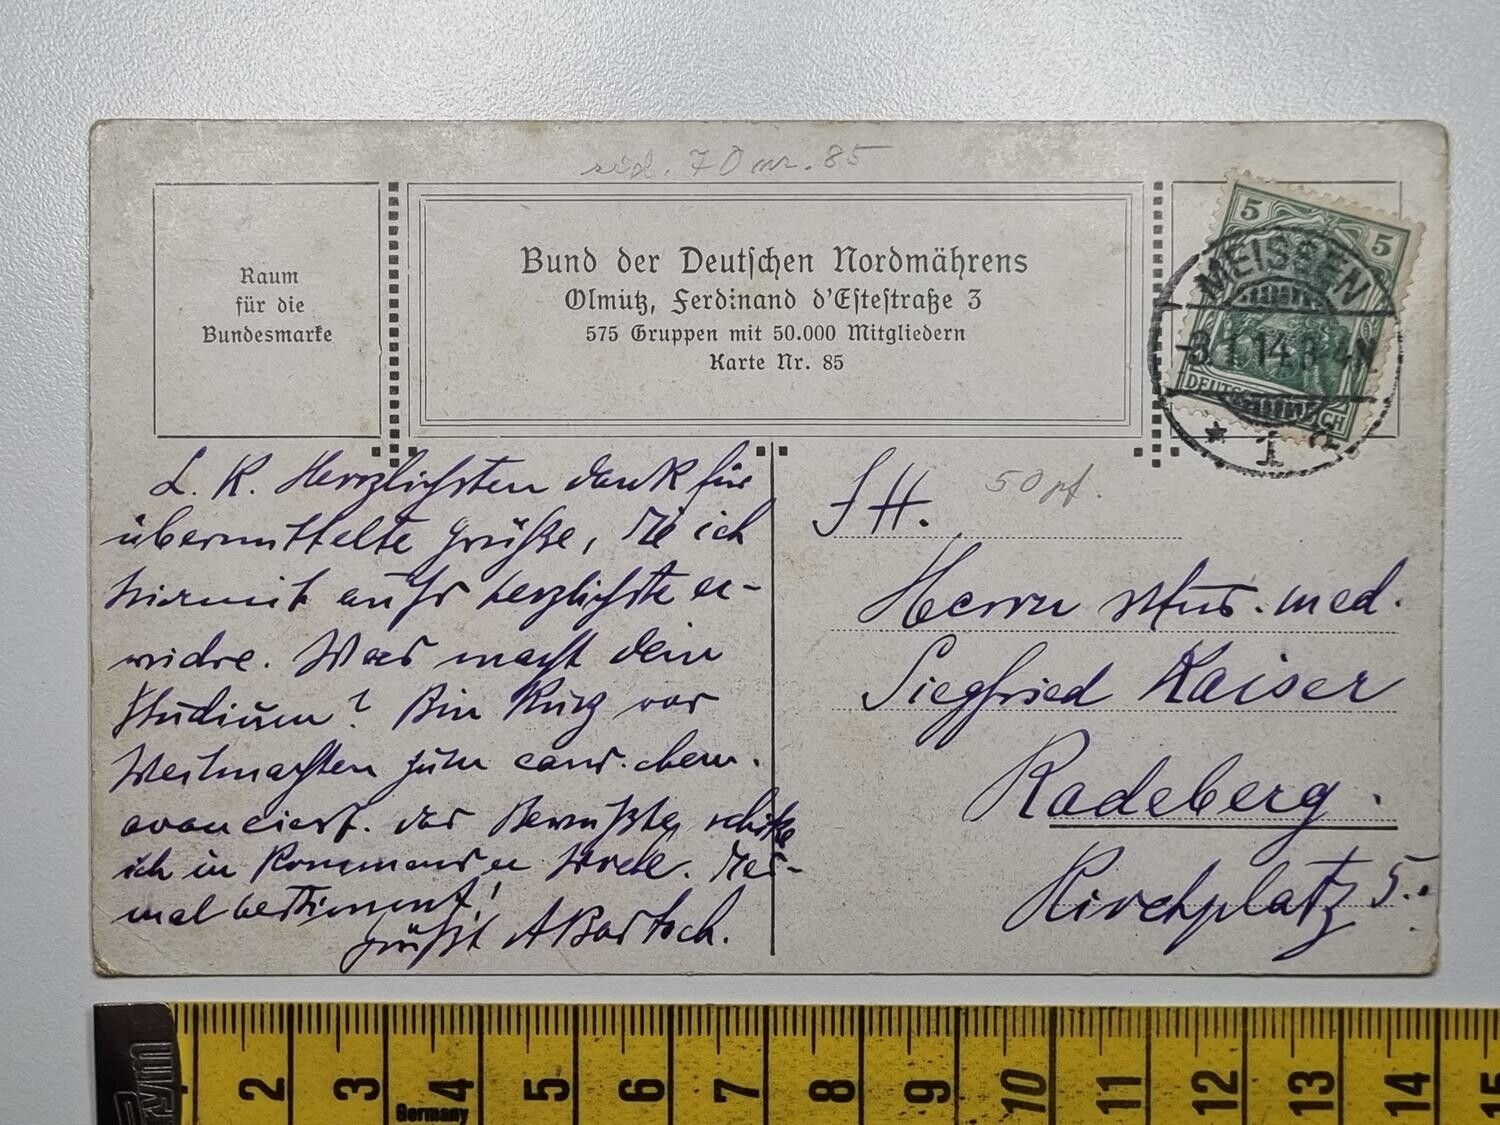 70 nr. 85
Raum
für die
Bundesmarke
Bund der Deutschen Nordmährens
Olmütz, Ferdinand d'Estestraße 3
575 Gruppen mit 50.000 Mitgliedern
Karte Nr. 85
5 5
MEISSEN
-3.1.14.3-4N
DEUTSCHES REICH
* 1 a
L. K. Herzlichsten Dank für
übermittelte Grüße, die ich
hiermit aufs herzlichste er-
widre. Was macht dein
Studium? Bin kurz vor
Weihnachten zum cand. chem.
avanciert. Das Bewußte schicke
ich in kommender Woche. Dies-
mal bestimmt!
grüßt A Bartsch.
50 pf.
S H.
Herrn stud. med.
Siegfried Kaiser
Radeberg.
Kirchplatz 5.
2 3 4 5 6 7 8 9 10 11 12 13 14 15
Germany